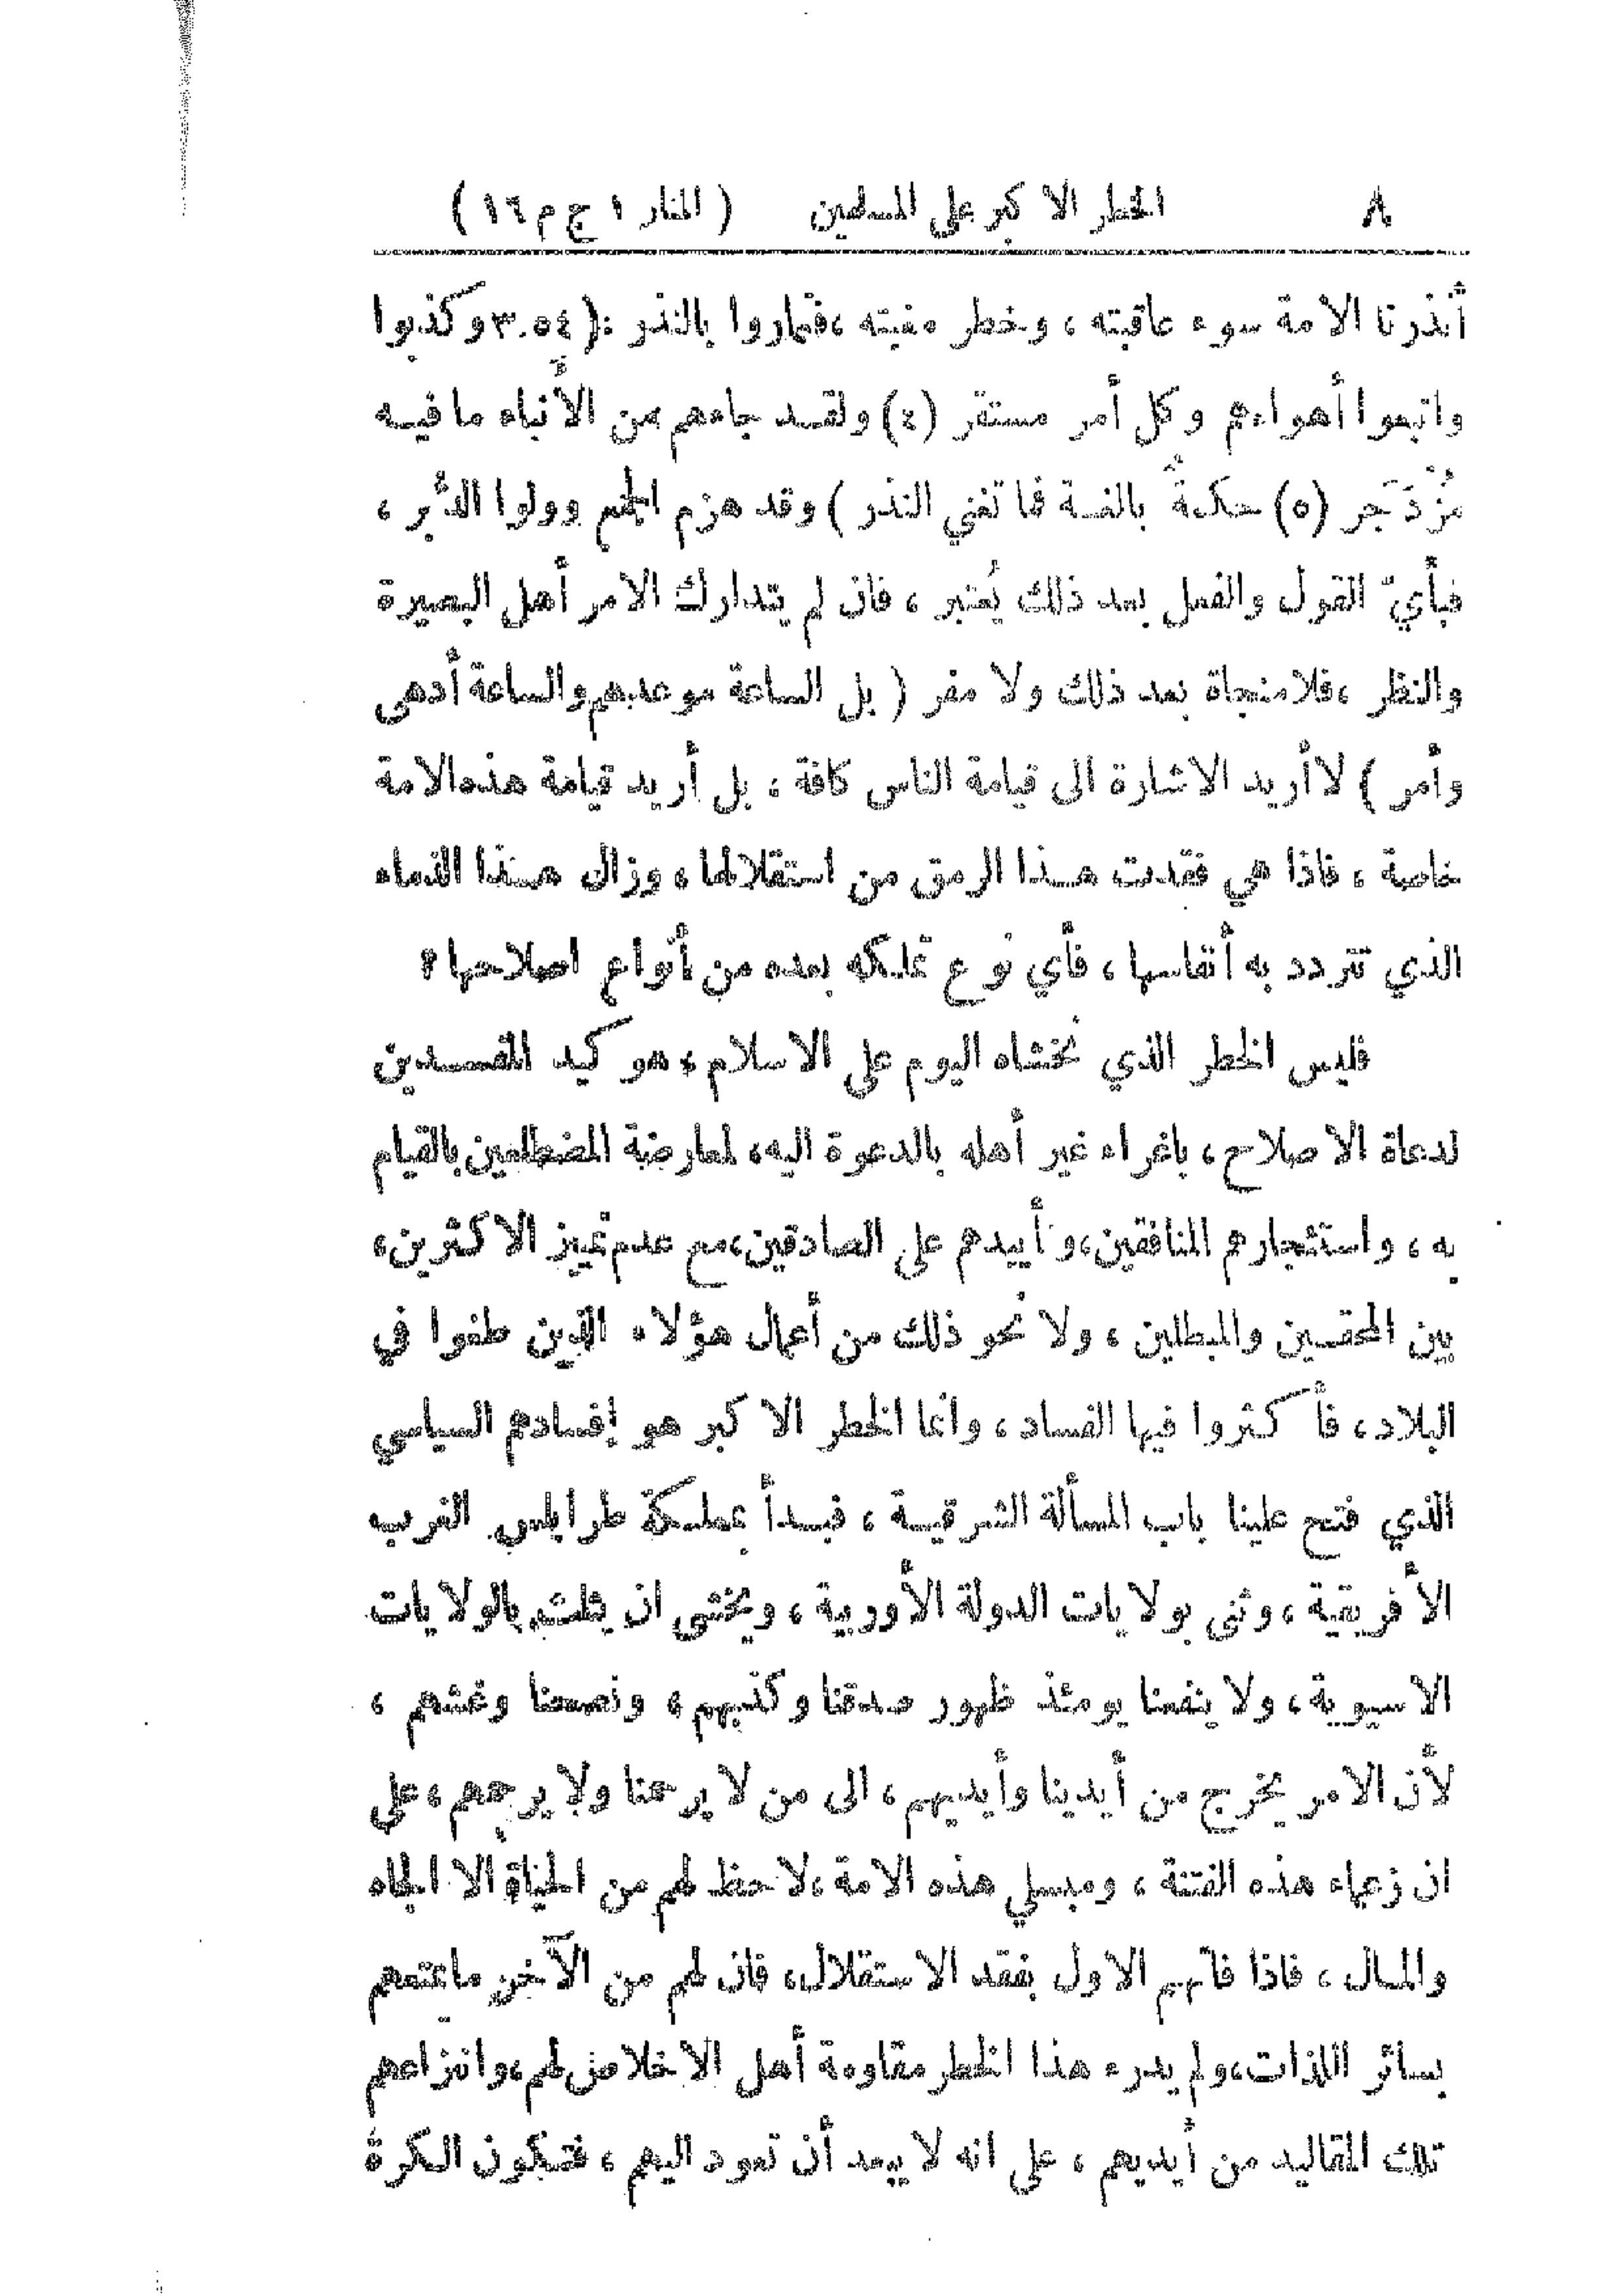 ٨ الخطر الاكبر على المسلمين ( المنار ١ ج م ١٦ )
أنذرنا الامة سوء عاقبته ، وخطر مغبته ،فتماروا بالنذر :( ٣.٥٤ وكذبوا
واتبعوا أهواءهم وكل أمر مستقر (٤) ولقد جاءهم من الأنباء ما فيه
مُزْدَجر (٥) حكمةٌ بالغة فما تغني النذر ) وقد هزم الجمع وولوا الدُّبر ،
فبأيّ القول والفعل بعد ذلك يُعتبر ، فان لم يتدارك الامر أهل البصيرة
والنظر ،فلا منجاة بعد ذلك ولا مفر ( بل الساعة موعدهم والساعة أدهى
وأمر ) لا أريد الاشارة الى قيامة الناس كافة ، بل أريد قيامة هذه الامة
خاصة ، فاذا هي فقدت هذا الرمق من استقلالها ، وزال هذا الذماء
الذي تتردد به أنفاسها ، فأي نوع تملكه بعده من أنواع اصلاحها ؟
فليس الخطر الذي نخشاه اليوم على الاسلام ، هو كيد المفسدين
لدعاة الاصلاح ، باغراء غير أهله بالدعوة اليه، لمعارضة المضطلعين بالقيام
به ، واستئجارهم المنافقين،وتأييدهم على الصادقين،مع عدم تمييز الاكثرين،
بين المحقين والمبطلين ، ولا نحو ذلك من أعمال هؤلاء الذين طغوا في
البلاد ، فأكثروا فيها الفساد ، وانما الخطر الاكبر هو إفسادهم السياسي
الذي فتح علينا باب المسألة الشرقية ، فبدأ بمملكة طرابلس الغرب
الأفريقية ، وثنى بولايات الدولة الأوربية ، ويخشى ان يثلث بالولايات
الاسيوية ، ولا ينفعنا يومئذ ظهور صدقنا وكذبهم ، ونصحنا وغشهم ،
لأن الامر يخرج من أيدينا وأيديهم ، الى من لا يرحمنا ولا يرحمهم ، على
ان زعماء هذه الفتنة ، ومبسلي هذه الامة ،لا حظ لهم من الحياة الا الجاه
والمال ، فاذا فاتهم الاول بفقد الاستقلال، فان لهم من الآخر ما يمتعهم
بسائر اللذات،ولم يدرء هذا الخطر مقاومة أهل الاخلاص لهم،وانتزاعهم
تلك المقاليد من أيديهم ، على انه لا يبعد أن تعود اليهم ، فتكون الكرة